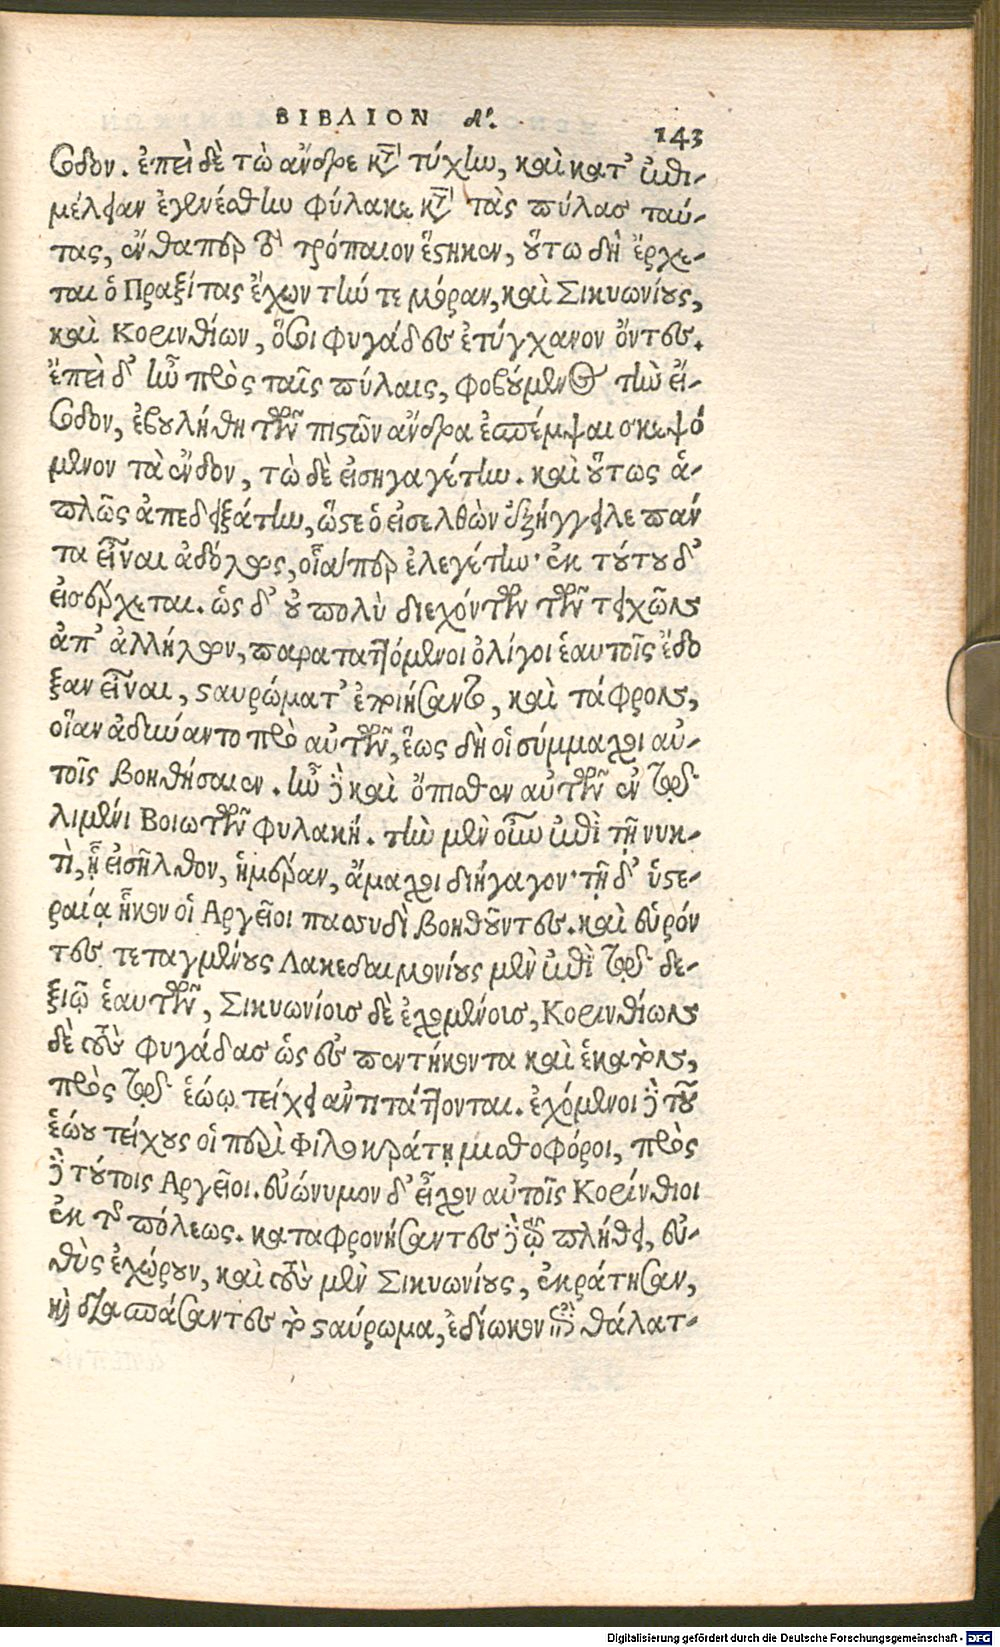 ΒΙΒΛΙΟΝ δ'.
143
σοδον. ἐπεὶ δὲ τὼ ἄνδρε κατὰ τύχην, καὶ κατ' ἐπι-
μέλειαν ἐγενέσθην φύλακε κατὰ τὰς πύλας ταύ-
τας, ἔνθαπερ τὸ τρόπαιον ἕστηκεν, οὕτω δὴ ἔρχε-
ται ὁ Πραξίτας ἔχων τήν τε μόραν, καὶ Σικυωνίους,
καὶ Κορινθίων, ὅσοι φυγάδες ἐτύγχανον ὄντες.
ἔπεὶ δ' ἦν πρὸς ταῖς πύλαις, φοβούμενος τὴν εἴ-
σοδον, ἐβουλήθη τῶν πιστῶν ἄνδρα ἐσπέμψαι σκεψό
μενον τὰ ἔνδον, τὼ δὲ εἰσηγαγέτην. καὶ οὕτως ἁ-
πλῶς ἀπεδειξάτην, ὥστε ὁ εἰσελθὼν ἐξήγγειλε πάν
τα εἶναι ἀδόλως, οἷά περ ἐλεγέτην· ἐκ τούτου δ'
εἰσέρχεται. ὡς δ' οὐ πολὺ διεχόντων τῶν τειχῶν
ἀπ' ἀλλήλων, παραταττόμενοι ὀλίγοι ἑαυτοῖς ἔδο
ξαν εἶναι, σταυρώματ' ἐποιήσαντο, καὶ τάφρον,
οἵαν ἀδύναντο πρὸ αὐτῶν, ἕως δὴ οἱ σύμμαχοι αὐ-
τοῖς βοηθήσαιεν. ἦν δὲ καὶ ὄπισθεν αὐτῶν ἐν τῷ
λιμένι Βοιωτῶν φυλακή. τὴν μὲν οὖν ἐπὶ τῇ νυκ-
τὶ, ᾗ εἰσῆλθον, ἡμέραν, ἄμαχοι διήγαγον· τῇ δ' ὑστε-
ραίᾳ ἧκον οἱ Αργεῖοι πασσυδὶ βοηθοῦντες. καὶ εὑρόν
τες τεταγμένους Λακεδαιμονίους μὲν ἐπὶ τῷ δε-
ξιῷ ἑαυτῶν, Σικυωνίοισ δὲ ἐχομένοισ, Κορινθίων
δὲ τοὺς φυγάδας ὡς ἐς πεντήκοντα καὶ ἑκατὸν,
πρὸς τῷ ἑώῳ τείχει ἀντιτάττονται. ἐχόμενοι δὲ τοῦ
ἑώου τείχους οἱ περὶ Φιλοκράτη μισθοφόροι, πρὸς
δὲ τούτοις Αργεῖοι. εὐώνυμον δ' εἶχον αὐτοῖς Κορίνθιοι
ἐκ τῆς πόλεως. καταφρονήσαντες δὲ τῷ πλήθει, εὐ-
θὺς ἐχώρουν, καὶ τοὺς μὲν Σικυωνίους, ἐκράτησαν,
καὶ διασπάσαντες τὸ σταύρωμα, ἐδίωκον ἐπὶ θάλατ-